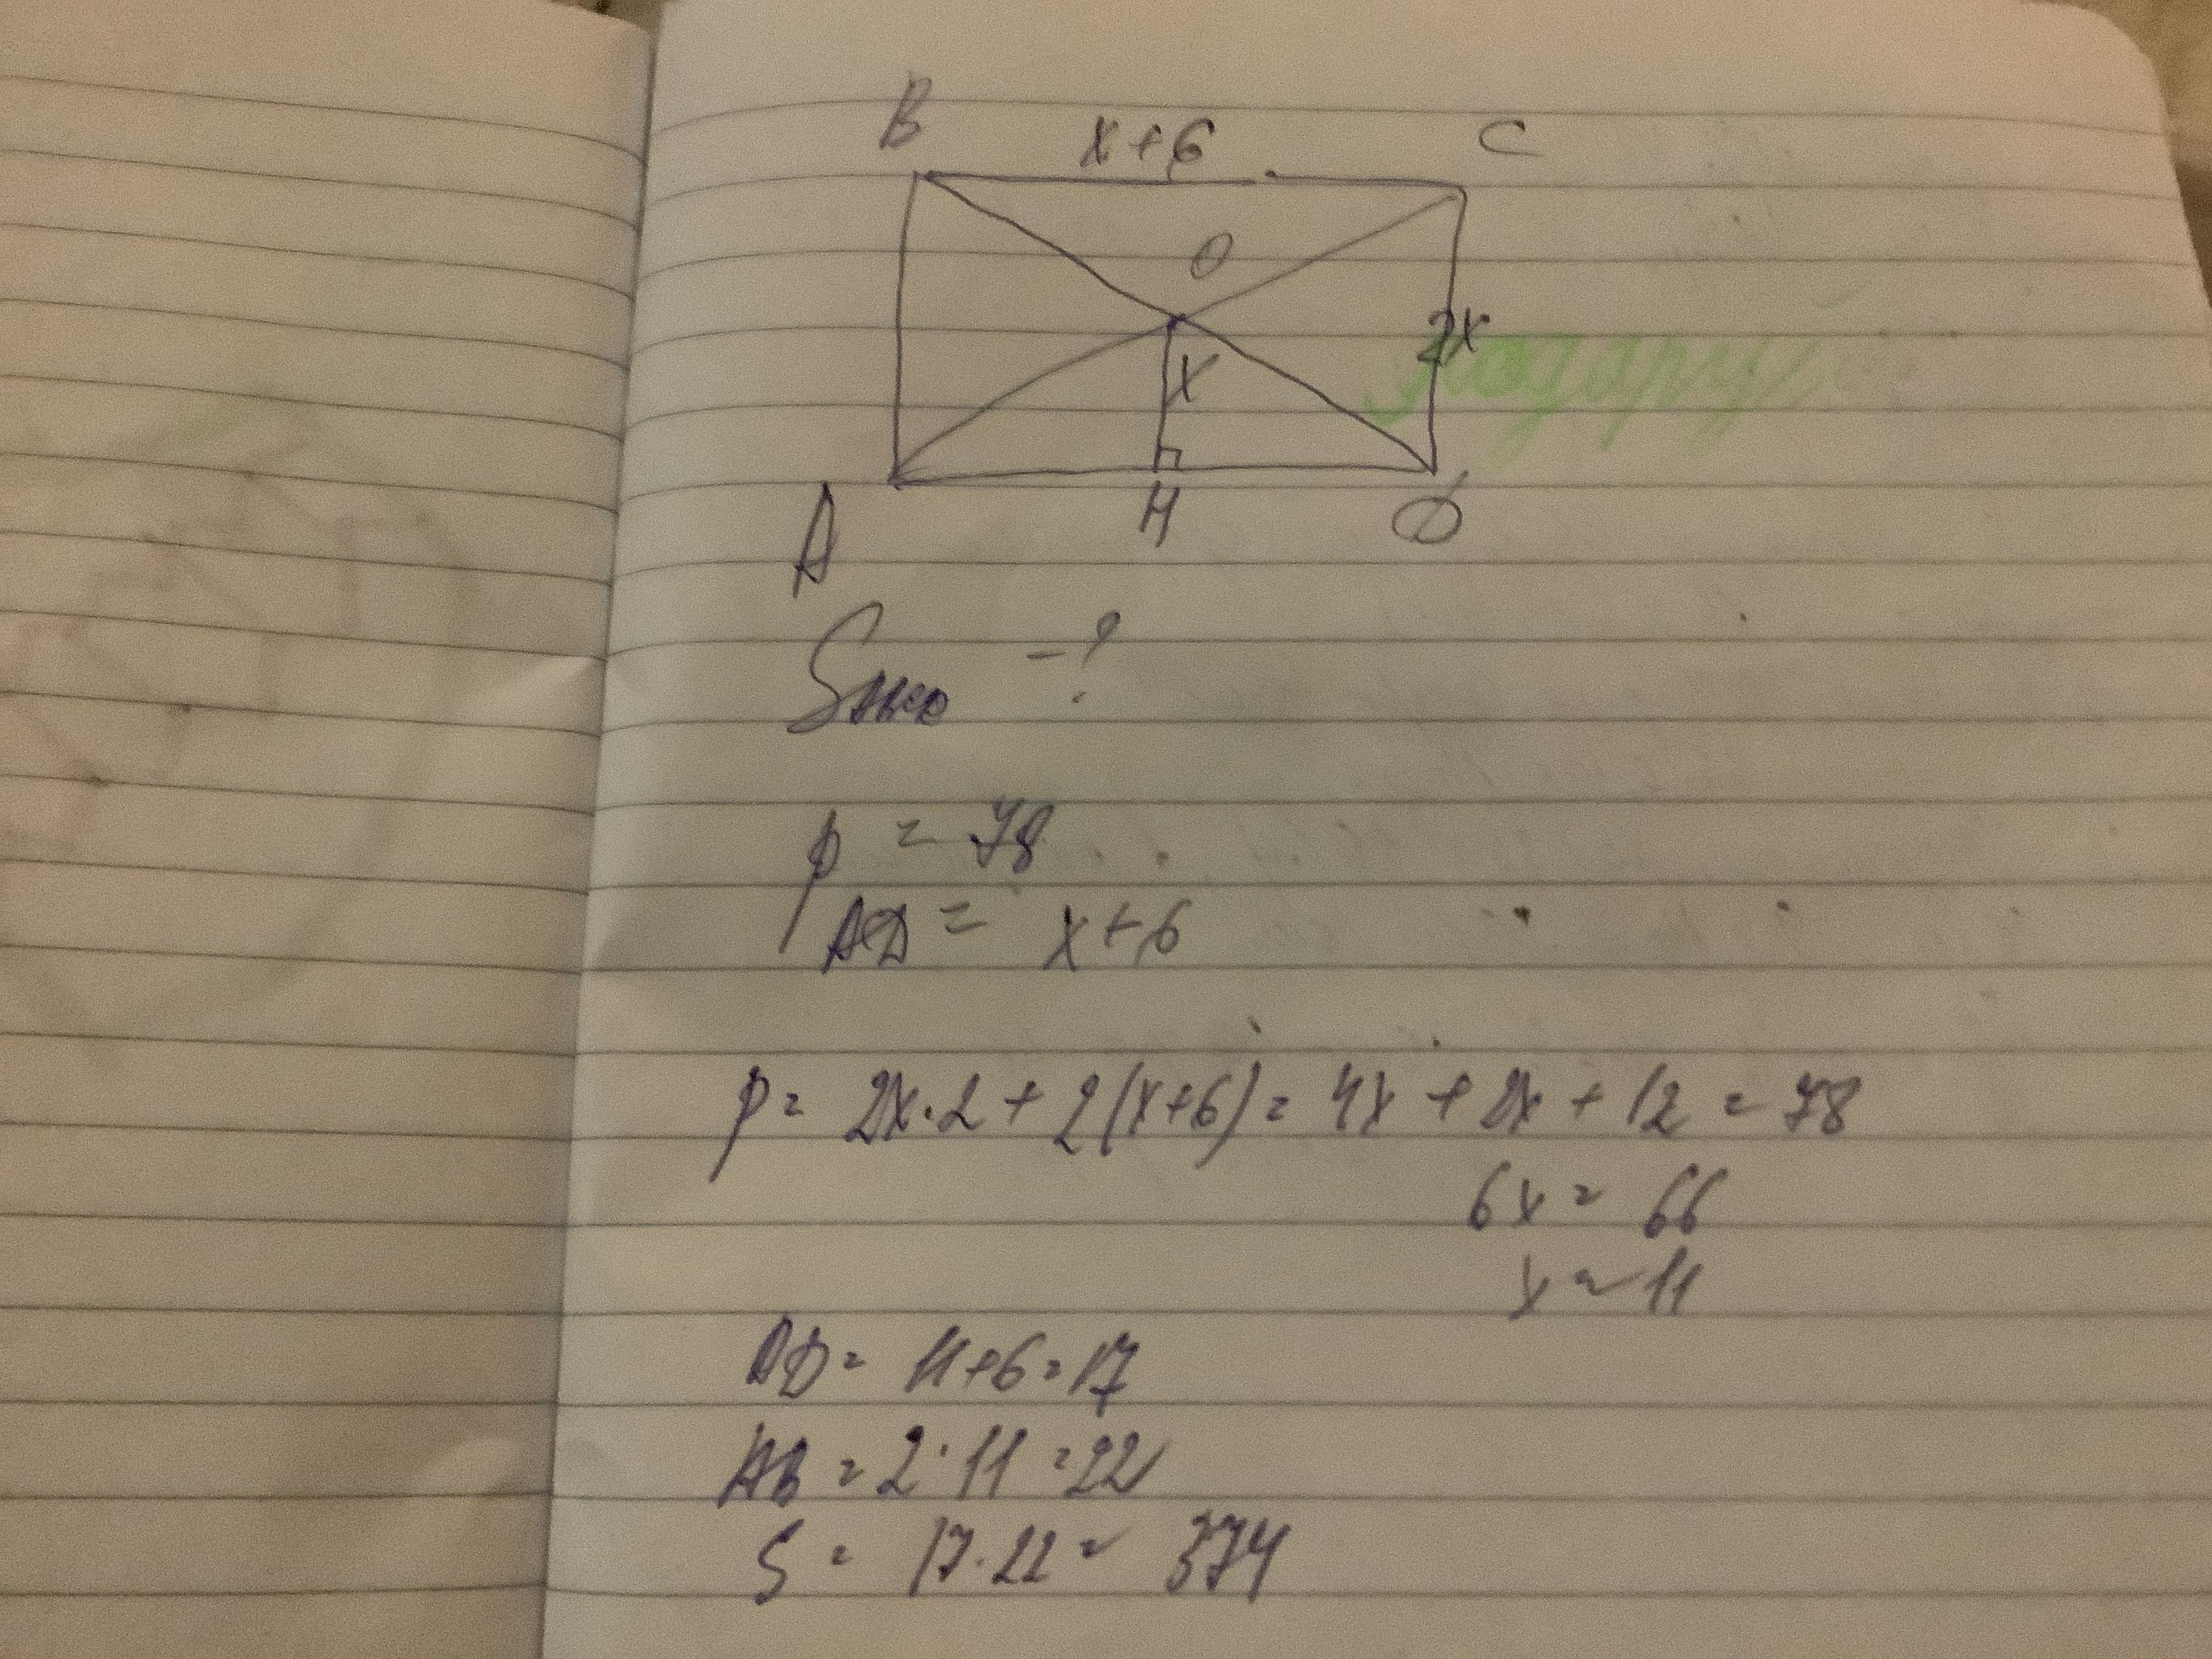 B x+6 C
O
2x
x
A H D
S ABCD - ?
p = 78
AD = x+6
p = 2x·2 + 2(x+6) = 4x + 2x + 12 = 78
6x = 66
x = 11
AD = 11+6=17
AB = 2·11 =22
S = 17·22 = 374